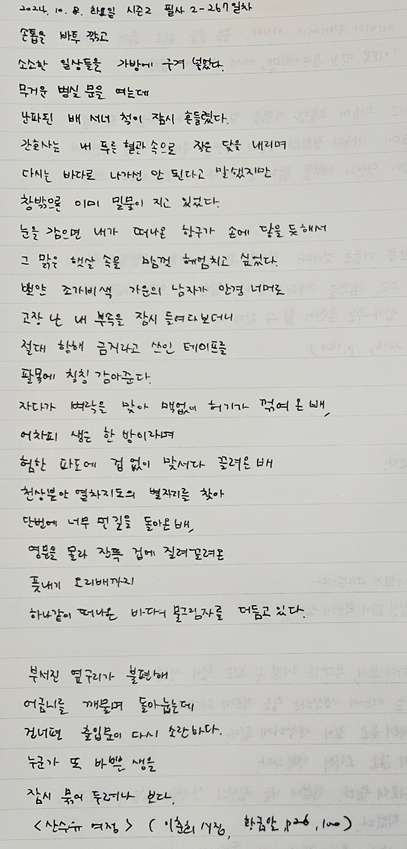 2024. 10. 8. 화요일 시즌2 필사 2-267일차
손톱을 바투 깎고
소소한 일상들을 가방에 구겨 넣었다.
무거운 병실 문을 여는데
난파된 배 서너 척이 잠시 흔들렸다.
간호사는 내 푸른 혈관 속으로 작은 닻을 내리며
다시는 바다로 나가선 안 된다고 말했지만
창밖으론 이미 밀물이 지고 있었다.
눈을 감으면 내가 떠나온 항구가 손에 닿을 듯해서
그 맑은 햇살 속을 맘껏 헤엄치고 싶었다.
뽀얀 조가비색 가운의 남자가 안경 너머로
고장 난 내 부속을 잠시 들여다보더니
절대 항해 금지라고 쓰인 테이프를
팔목에 칭칭 감아준다.
자다가 벼락을 맞아 맥없이 허기가 꺾여 온 배,
어차피 생은 한 방이라며
험한 파도에 겁 없이 맞서다 끌려온 배
천상분야 열차지도의 별자리를 찾아
단번에 너무 먼 길을 돌아온 배,
영문을 몰라 잔뜩 겁에 질려 끌려온
풋내기 오리배까지
하나같이 떠나온 바다의 물그림자를 더듬고 있다.
부서진 옆구리가 불편해
어금니를 깨물며 돌아눕는데
건너편 출입문이 다시 소란하다.
누군가 또 바쁜 생을
잠시 묶어 두려나 보다.
<산수유 여정> (이춘희 시집, 황금알, p26, 100)